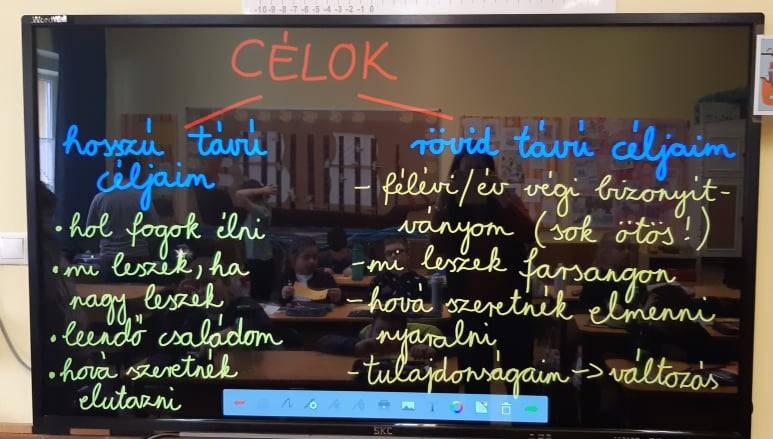 -10 -9 -8 -7 -6 -5 -4 -3 -2 -1 0
CÉLOK
hosszú távú
céljaim
• hol fogok élni
• mi leszek, ha
nagy leszek
• leendő családom
• hová szeretnék
elutazni
rövid távú céljaim
- félévi/év végi bizonyít-
ványom (sok ötös!)
- mi leszek farsangon
- hová szeretnék elmenni
nyaralni
- tulajdonságaim -> változás
SKC